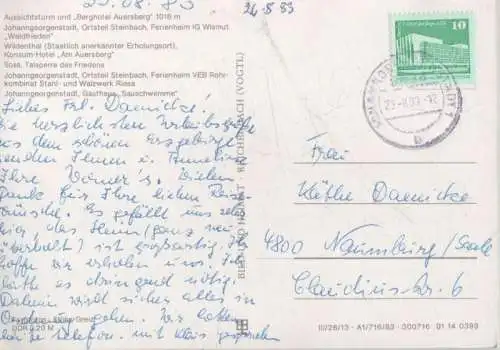 23.08.83
24.8.83
Aussichtsturm und „Berghotel Auersberg" 1018 m
Johanngeorgenstadt, Ortsteil Steinbach, Ferienheim IG Wismut
„Waldfrieden"
Wildenthal (Staatlich anerkannter Erholungsort),
Konsum-Hotel „Am Auersberg"
Sosa, Talsperre des Friedens
Johanngeorgenstadt, Ortsteil Steinbach, Ferienheim VEB Rohr-
kombinat Stahl- und Walzwerk Riesa
Johanngeorgenstadt, Gasthaus „Sauschwemme"
Liebes Frl. Damicke!
Die herzlichsten Urlaubsgrüße
aus dem schönen Erzgebirge
senden Ihnen u.
Ihre Werner's. Vielen
Dank für Ihre lieben Reise-
wünsche. Es gefällt uns sehr
hier, das Heim (ganz neu
) ist großartig. Ich
hoffe wir erholen uns. Ich
hätte es dringend nötig.
Daheim wird sicher alles in
Ordnung gehen. Wir haben
heute telefon. mit gesprochen
DDR 0,20 M
BILD UND HEIMAT REICHENBACH (VOGTL)
10
DDR
Frau
Käthe Damicke
4800 Naumburg/Saale
Claudiusstr. 6
III/26/13 A1/716/83 300716 01 14 0393